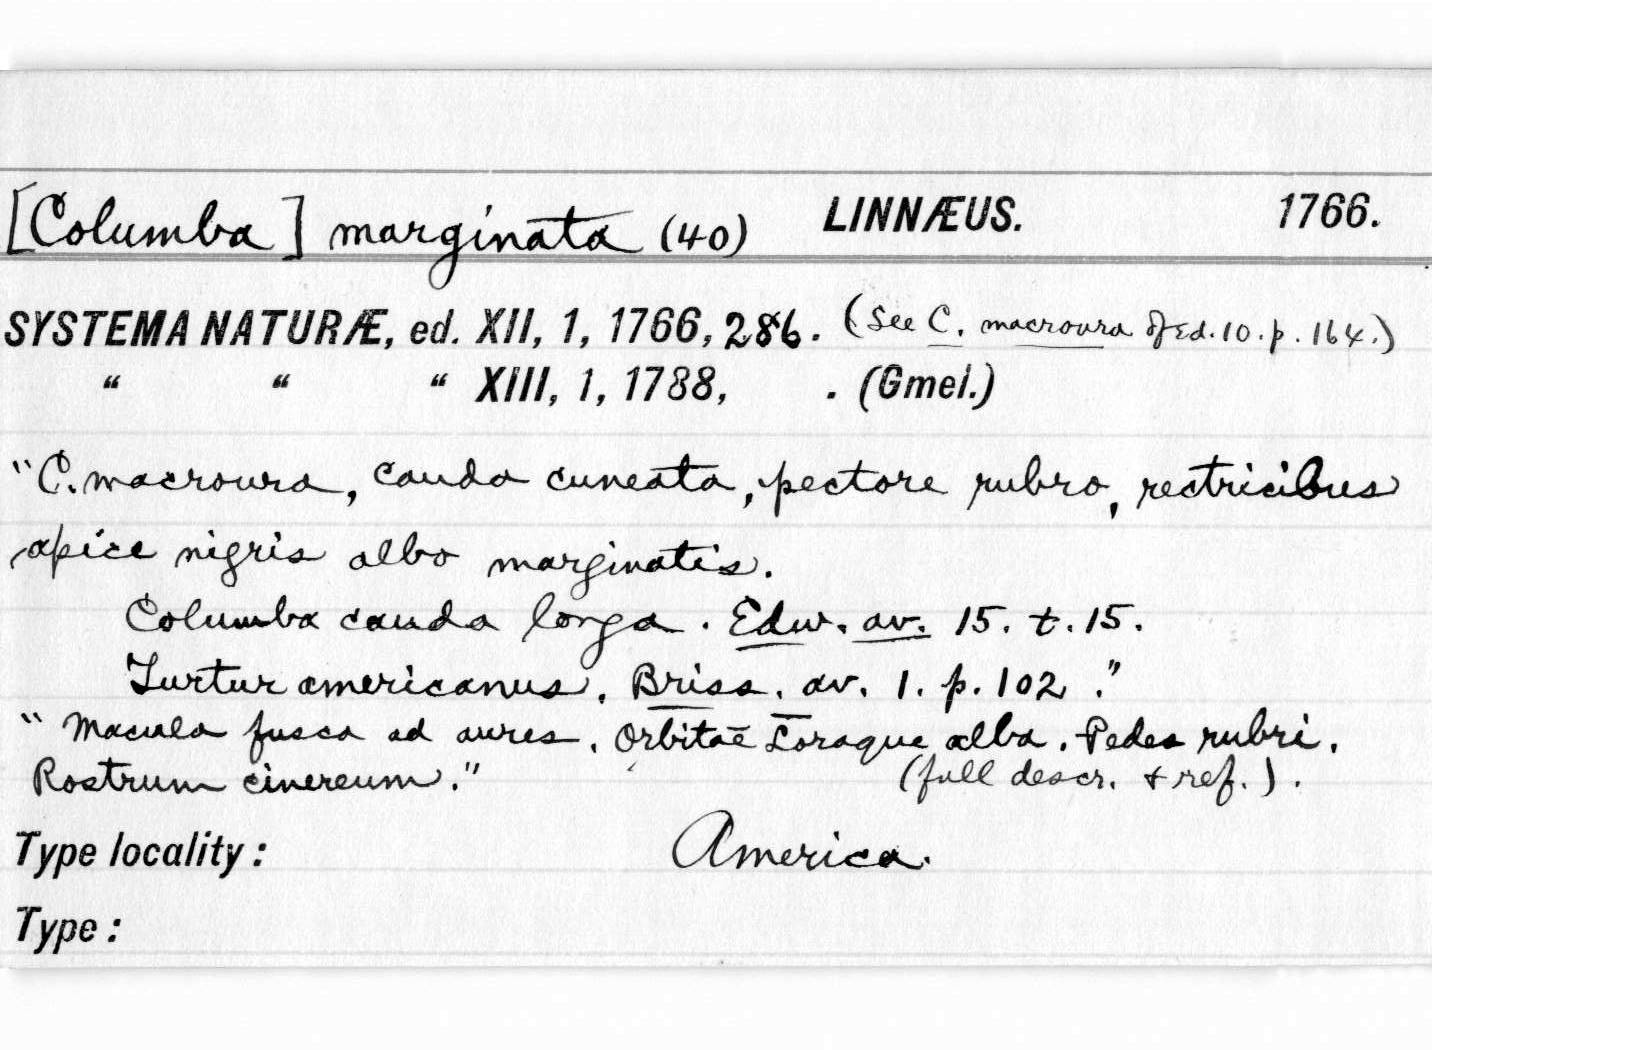 [Columba] marginata (40) LINNÆUS. 1766.
SYSTEMA NATURÆ, ed. XII, 1, 1766, 286. (See C. macroura of Ed. 10. p. 164.)
“ “ “ XIII, 1, 1788, . (Gmel.)
"C. macroura, cauda cuneata, pectore rubro, rectricibus
apice nigris albo marginatis.
Columba cauda longa. Edw. av. 15. t. 15.
Turtur americanus. Briss. av. 1. p. 102."
"Macula fusca ad aures. Orbitae Loraque alba. Pedes rubri.
Rostrum cinereum." (full descr. & ref.).
Type locality: America.
Type: